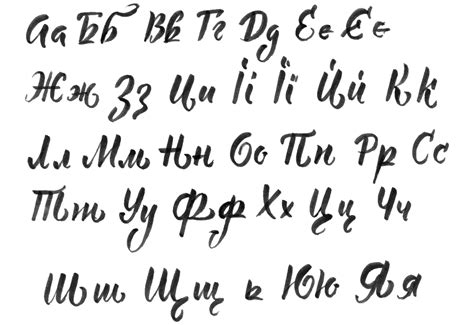 Аа Бб Вв Гг Дд Ее Єє
Жж Зз Ии Іі Її Йй Кк
Лл Мм Нн Оо Пп Рр Сс
Тт Уу Фф Хх Цц Чч
Шш Щщ ь Юю Яя